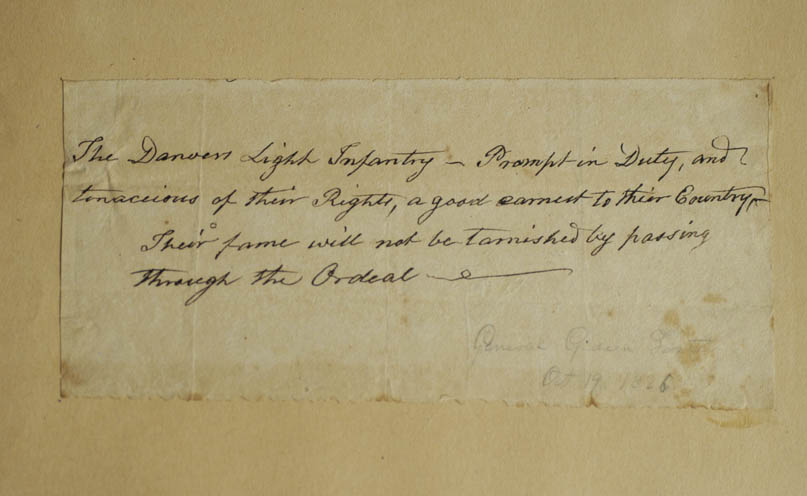 The Danvers Light Infantry – Prompt in Duty, and
tenaceious of their Rights, a good earnest to their Country,–
Their fame will not be tarnished by passing
through the Ordeal
General Gideon Foster
Oct 19. 1826